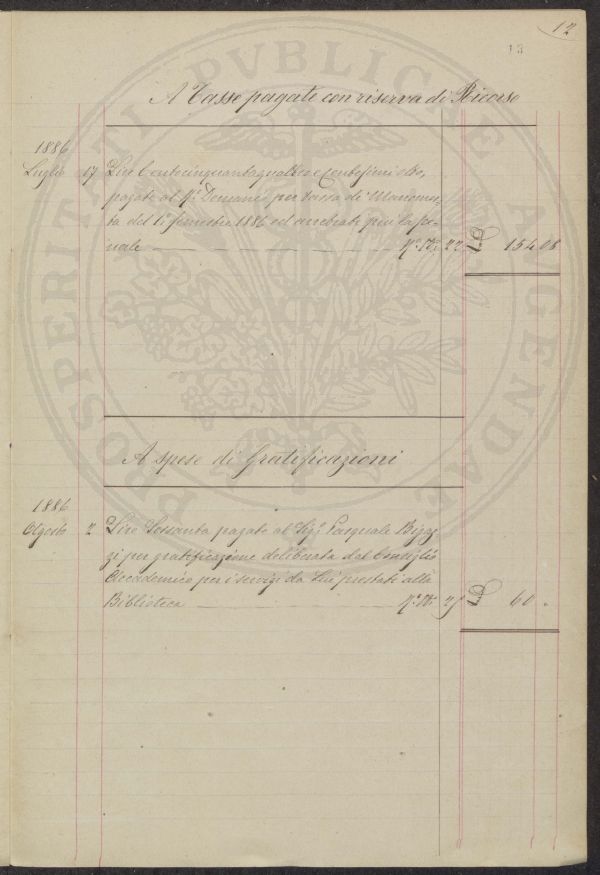 12
13
A Tasse pagate con riserva di Ricorso
1886
Luglio 17 Lire Centocinquantaquattro e Centesimi otto,
pagate al R.º Demanio per tassa di Manomor-
ta del 1º semestre 1886 ed arretrati più la pe-
nale N.º 22 L 154 08
A spese di Gratificazioni
1886
Agosto 2 Lire Sessanta pagate al Sig.r Pasquale Bigaz-
zi per gratificazione deliberata dal Consiglio
Accademico per i servizi da Lui prestati alla
Biblioteca N.º 25 L 60 "
PROSPERITATI PVBLICAE AVGENDAE